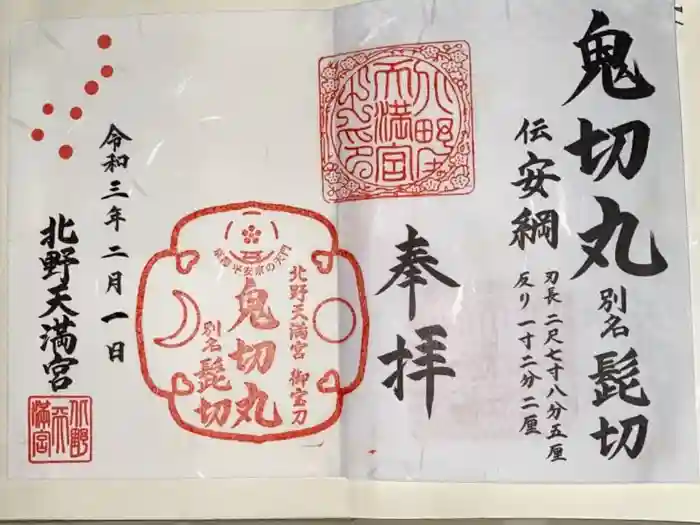 鬼切丸 別名 髭切
伝 安綱
刃長 二尺七寸八分五厘
反り 一寸二分二厘
奉拝
北野天満宮 御宝刀
鬼切丸
別名 髭切
令和三年二月一日
北野天満宮
北野
天
満宮